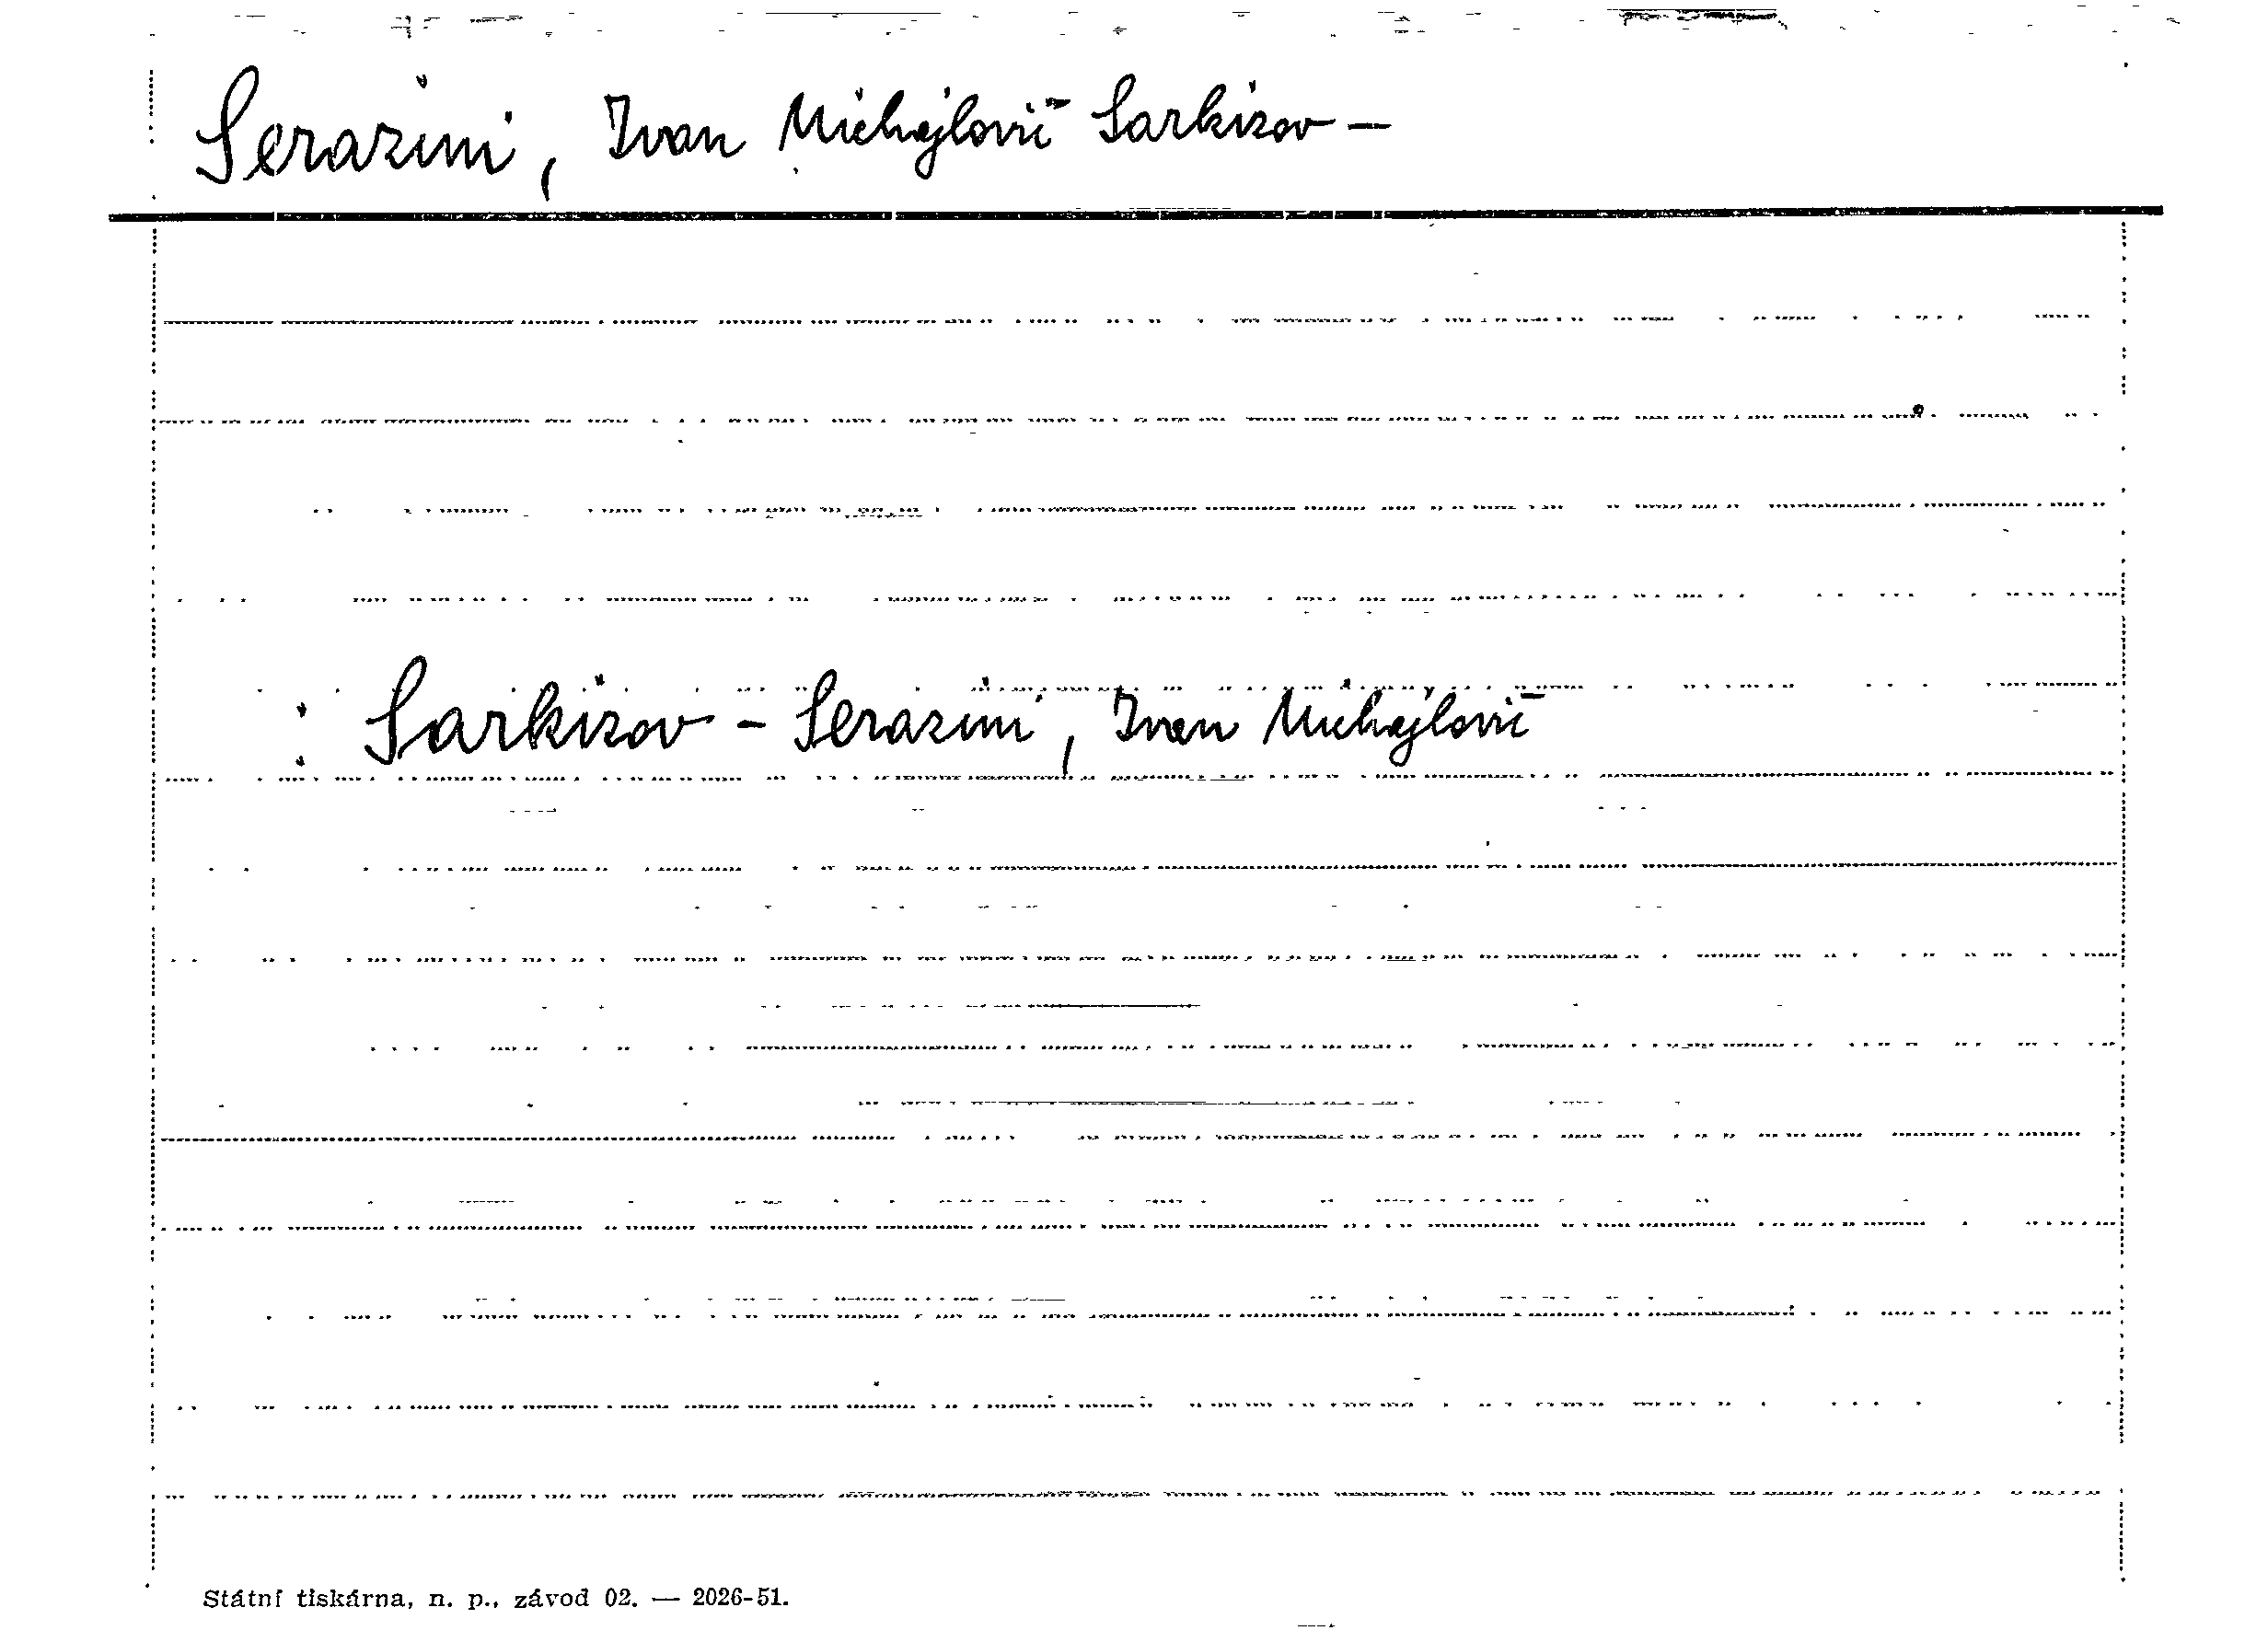 Serazini, Ivan Michajlovič Sarkizov —
: Sarkizov - Serazini, Ivan Michajlovič
Státní tiskárna, n. p., závod 02. — 2026-51.